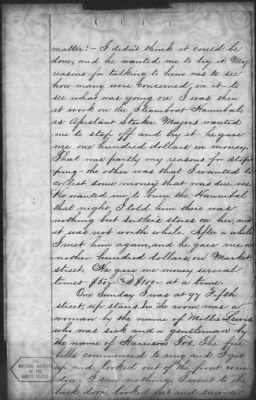 matter:- I didn't think it could be
done, and he wanted me to try it. My
reasons for talking to him was to see
how many were concerned in it - to
see what was going on. I was then
at work on the Steamboat Hannibal
as Assistant Striker. Majors wanted
me to stop off and try it. he gave
me one hundred dollars in money.
That was partly my reasons for stop
ping - the other was that I wanted to
collect some money that was due me.
He wanted me to burn the Hannibal
that night, I told him there was
nothing but sutler's stores on her, and
it was not worth while. After a while
I met him again, and he gave me a
nother hundred dollars, on Market
street. He gave me money several
times $50 & $100 - at a time.
One Sunday I was at 97 Fifth
street, up stairs in the room with a
woman by the name of Mollie Lewis
who was sick and a gentleman by
the name of Harrison Fox. The fire
bells commenced to ring and I got
up and looked out of the front
I saw nothing I went to the
back door looked out and saw
THE NATIONAL ARCHIVES OF THE UNITED STATES